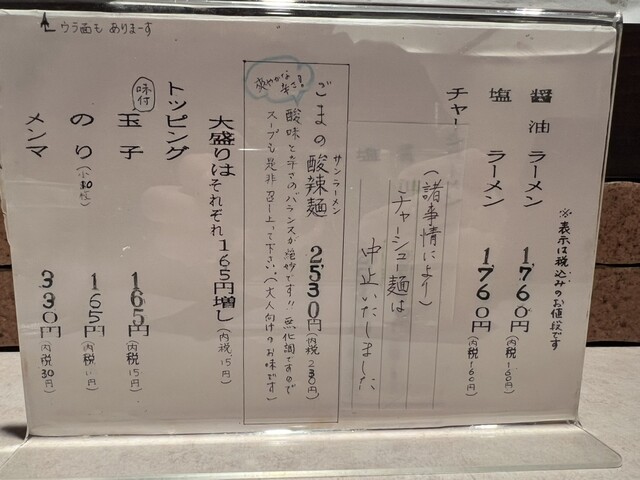 ウラ面も ありまーす
※表示は税込みのお値段です
醤油ラーメン 1,760円(内税160円)
塩 ラーメン 1,760円(内税160円)
チャー
(諸事情により)
チャーシュー麺は
中止いたしました
サンラーメン
ごまの酸辣麺 2,530円(内税230円)
爽やかな辛さ!
酸味と辛さのバランスが絶妙です!!無化調ですので
スープも是非召し上って下さい。(大人向けのお味です)
大盛りはそれぞれ165円増し(内税15円)
トッピング
味付
玉子 165円(内税15円)
のり(小30枚) 165円(内税15円)
メンマ 330円(内税30円)